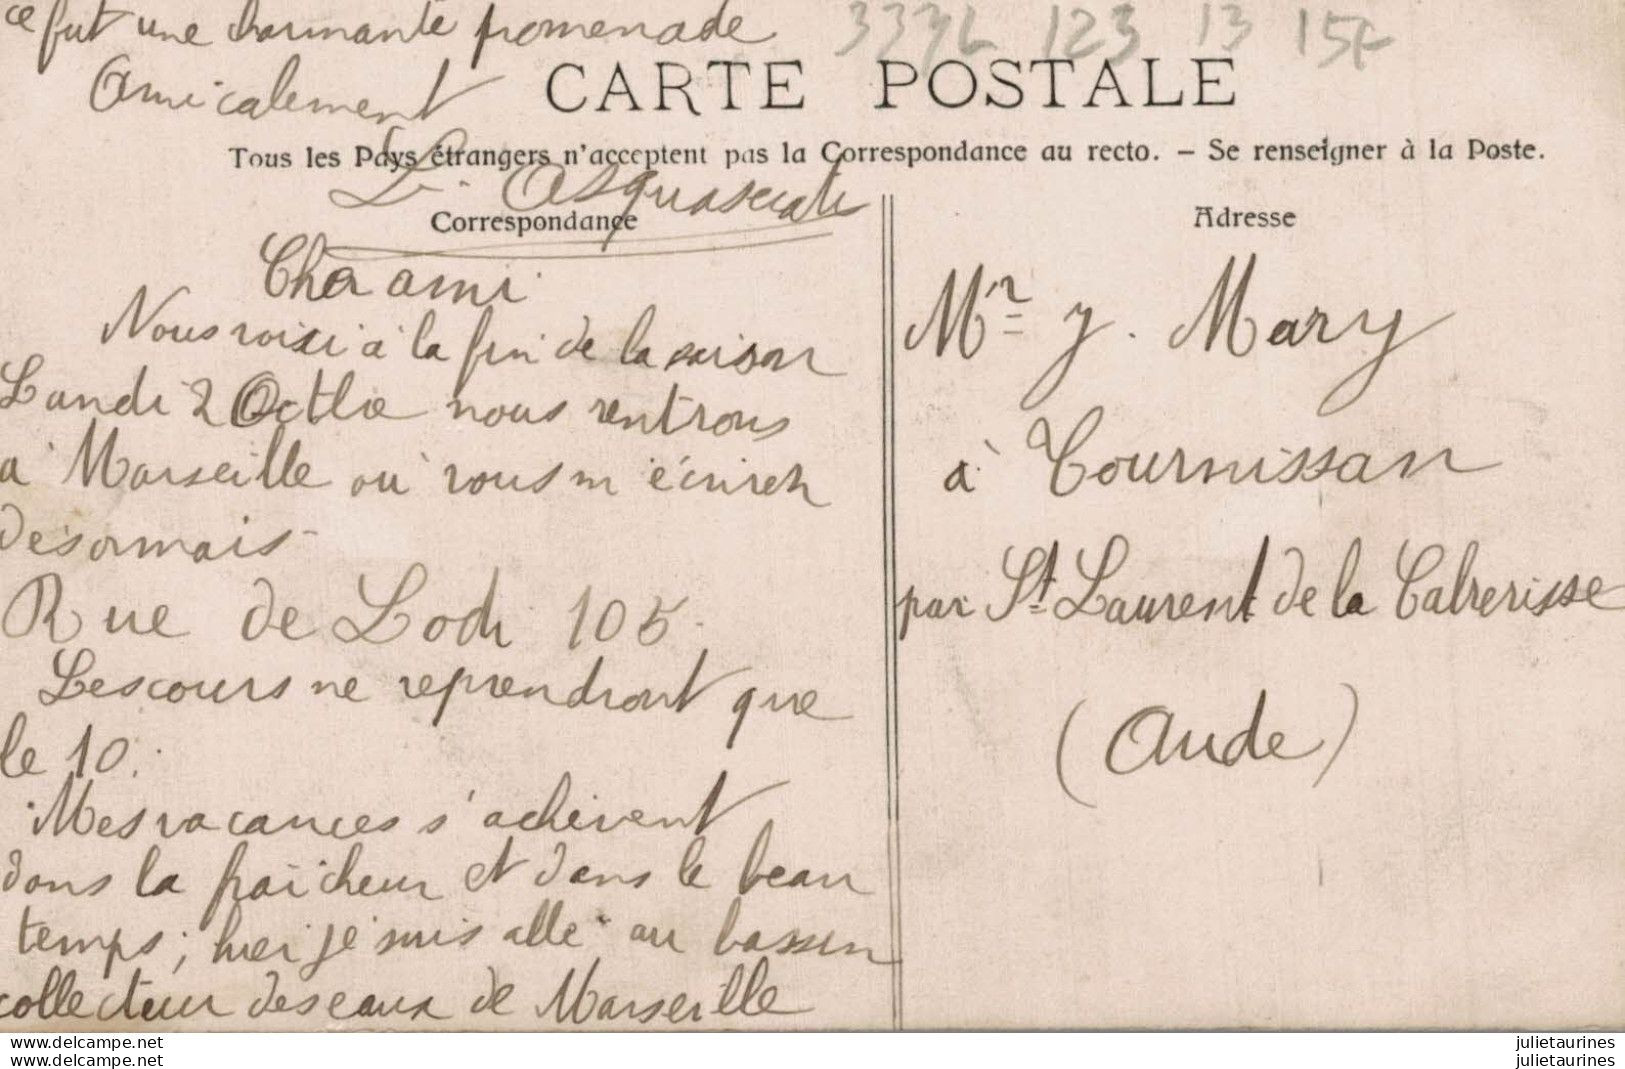 ce fut une charmante promenade
3336 123 13 15F
Amicalement
CARTE POSTALE
Tous les Pays étrangers n'acceptent pas la Correspondance au recto. – Se renseigner à la Poste.
L.
Correspondance
Adresse
Cher ami
Nous voici à la fin de la saison
Lundi 2 Octbre nous rentrons
a Marseille où vous m'écrirez
desormais
Rue de Lodi 105.
Les cours ne reprendront que
le 10.
Mes vacances s'achèvent
dans la fraîcheur et dans le beau
temps; hier je suis allé au bassin
collecteur des eaux de Marseille
Mr J. Mary
à Tournissan
par St. Laurent de la Cabrerisse
(Aude)
julietaurines
julietaurines
julietaurines
julietaurines